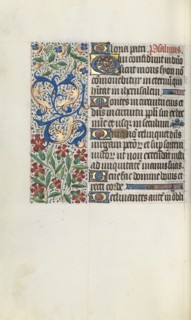 Gloria patri Psalmus
Qui confidunt in dño
sicut mons syon no
commovebitur in eternũ qui
habitat in iherusalem
Montes in circuitu eius et
dñs in circuitu ppli sui ex hoc
nũc et usqz in seculum
Quia nõ relinquet dñs
virgam petõr̃
iusto4 ut non extendãt iusti
ad iniquitatẽ manus suas
Benefac domine bonis et
rectis corde
Declinantes autẽ in obli